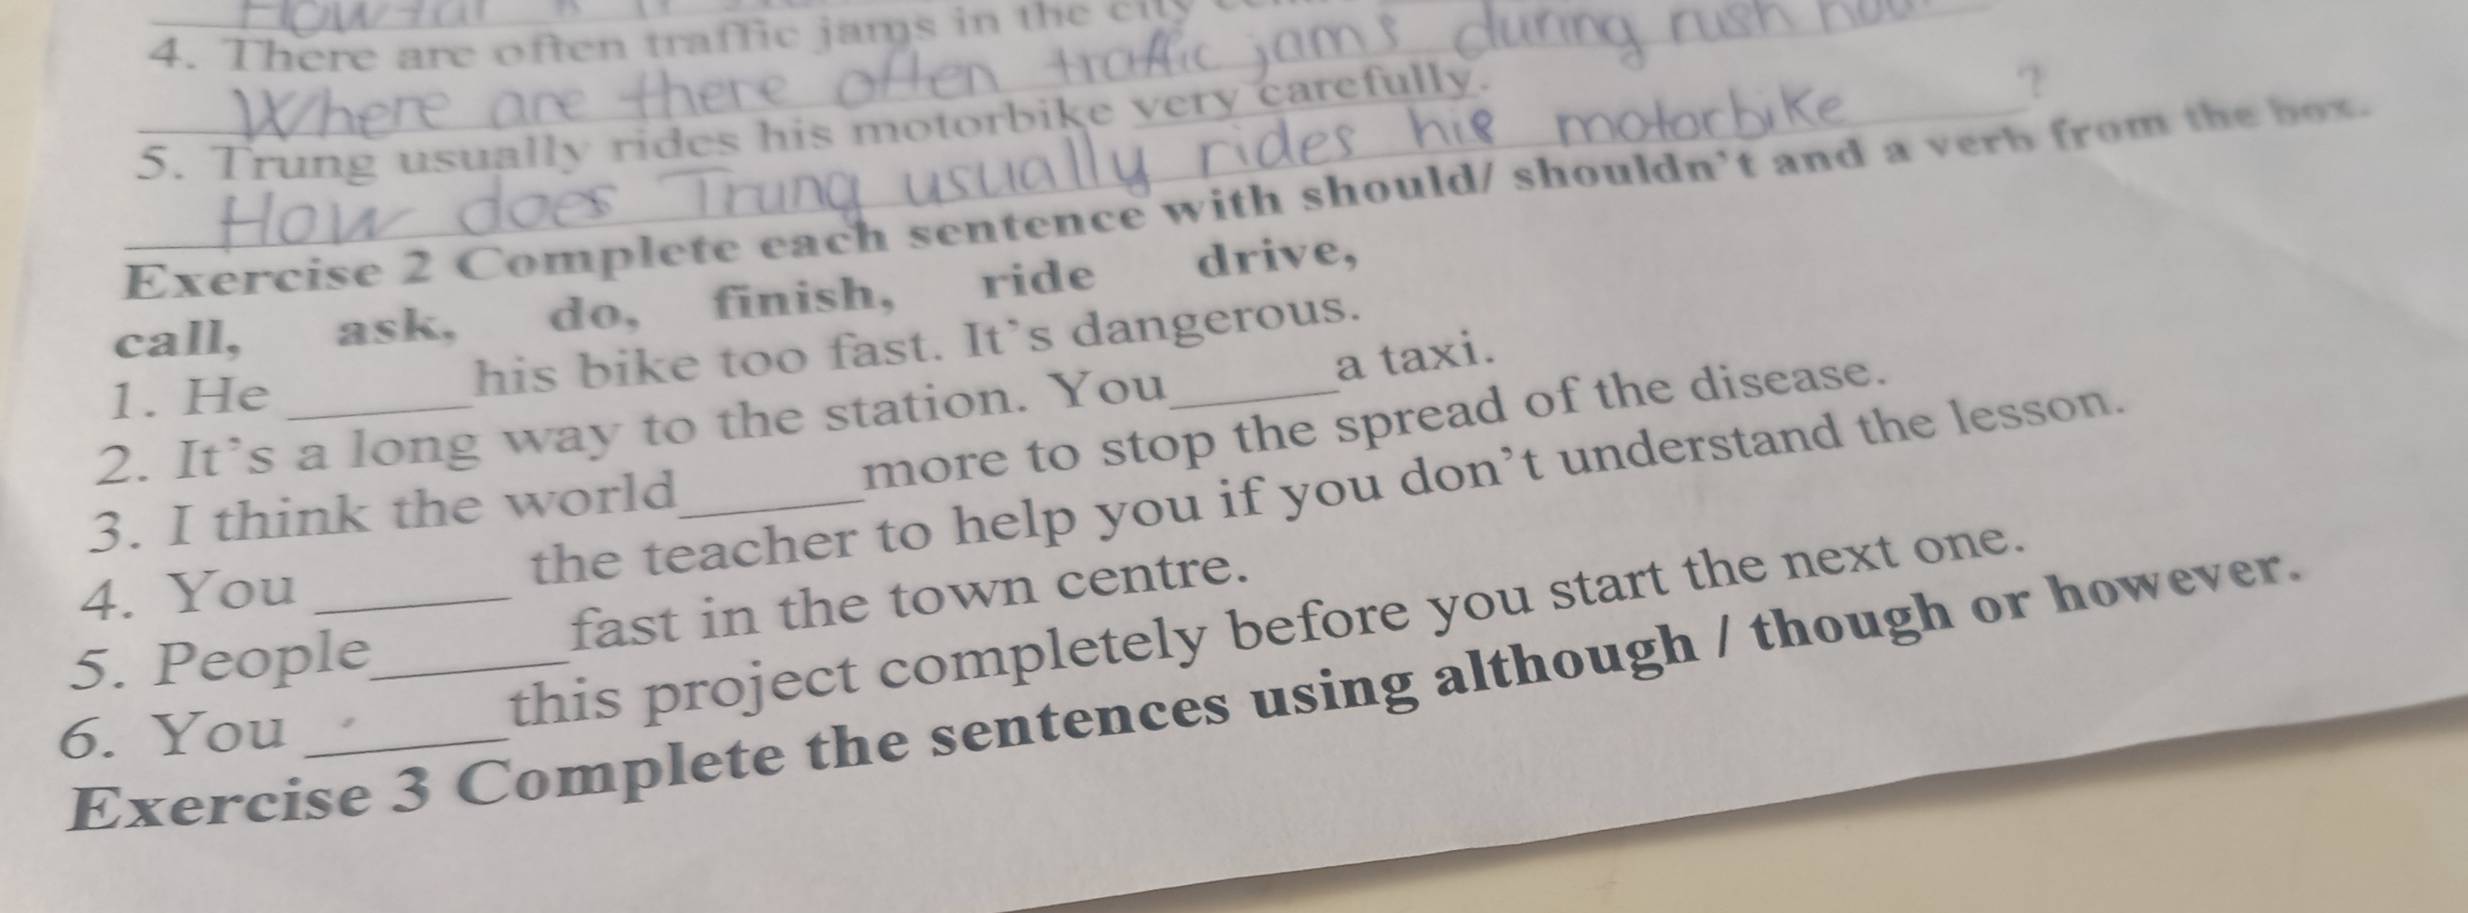 4. There are often traffic jams in the city
Where are there often traffic jams during rush hour
5. Trung usually rides his motorbike very carefully.
How does Trung usually rides his motorbike ?
Exercise 2 Complete each sentence with should/ shouldn't and a verb from the box.
call, ask, do, finish, ride drive,
1. He ______ his bike too fast. It's dangerous.
2. It's a long way to the station. You______ a taxi.
3. I think the world______more to stop the spread of the disease.
4. You ______ the teacher to help you if you don't understand the lesson.
5. People______fast in the town centre.
6. You ______this project completely before you start the next one.
Exercise 3 Complete the sentences using although / though or however.